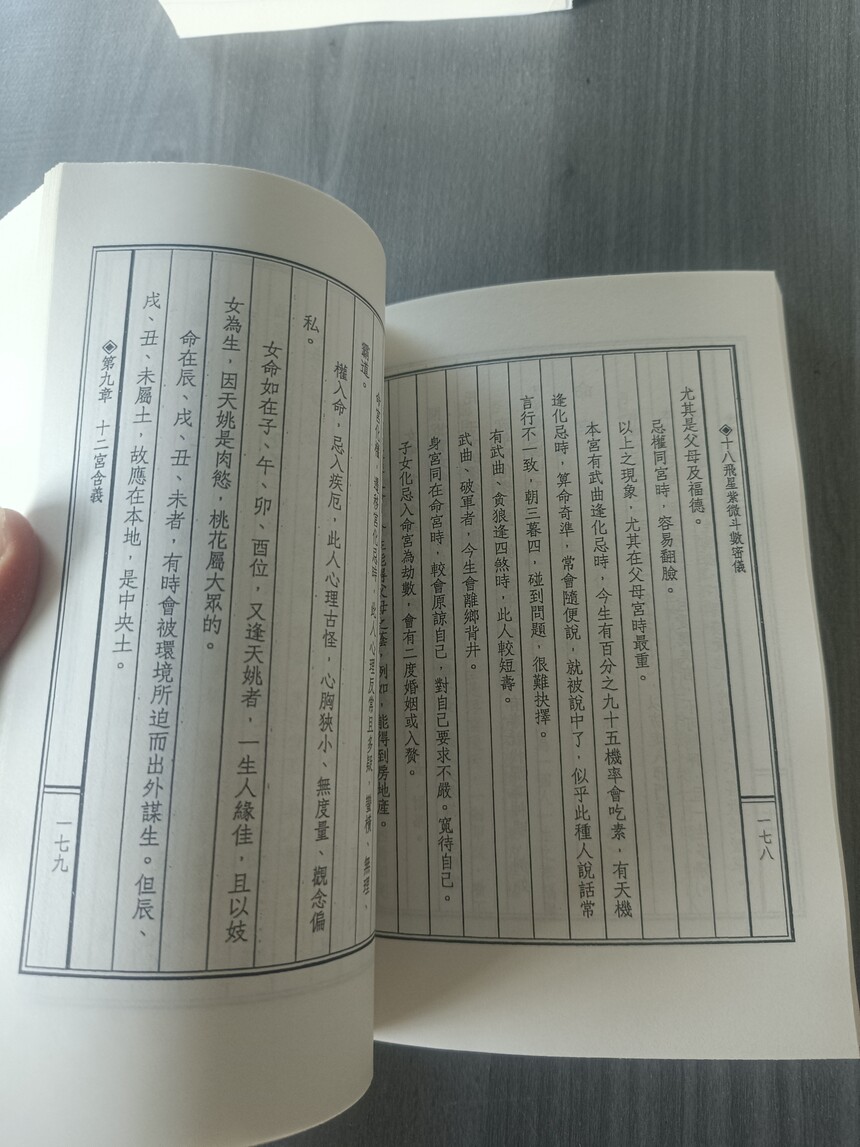 ◈十八飛星紫微斗數密儀
一七八
尤其是父母及福德。
忌權同宮時，容易翻臉。
以上之現象，尤其在父母宮時最重。
本宮有武曲逢化忌時，今生有百分之九十五機率會吃素，有天機
逢化忌時，算命奇準，常會隨便說，就被說中了，似乎此種人說話常
言行不一致，朝三暮四，碰到問題，很難抉擇。
有武曲、貪狼逢四煞時，此人較短壽。
武曲、破軍者，今生會離鄉背井。
身宮同在命宮時，較會原諒自己，對自己要求不嚴。寬待自己。
子女化忌入命宮為劫數，會有二度婚姻或入贅。
能得父母之蔭，例如，能得到房地產。
時，此人心理反常且多疑，蠻橫、無理、
霸道。
權入命，忌入疾厄，此人心理古怪，心胸狹小、無度量、觀念偏
私。
女命如在子、午、卯、酉位，又逢天姚者，一生人緣佳，且以妓
女為生，因天姚是肉慾，桃花屬大眾的。
命在辰、戌、丑、未者，有時會被環境所迫而出外謀生。但辰、
戌、丑、未屬土，故應在本地，是中央土。
◈第九章　十二宮含義
一七九